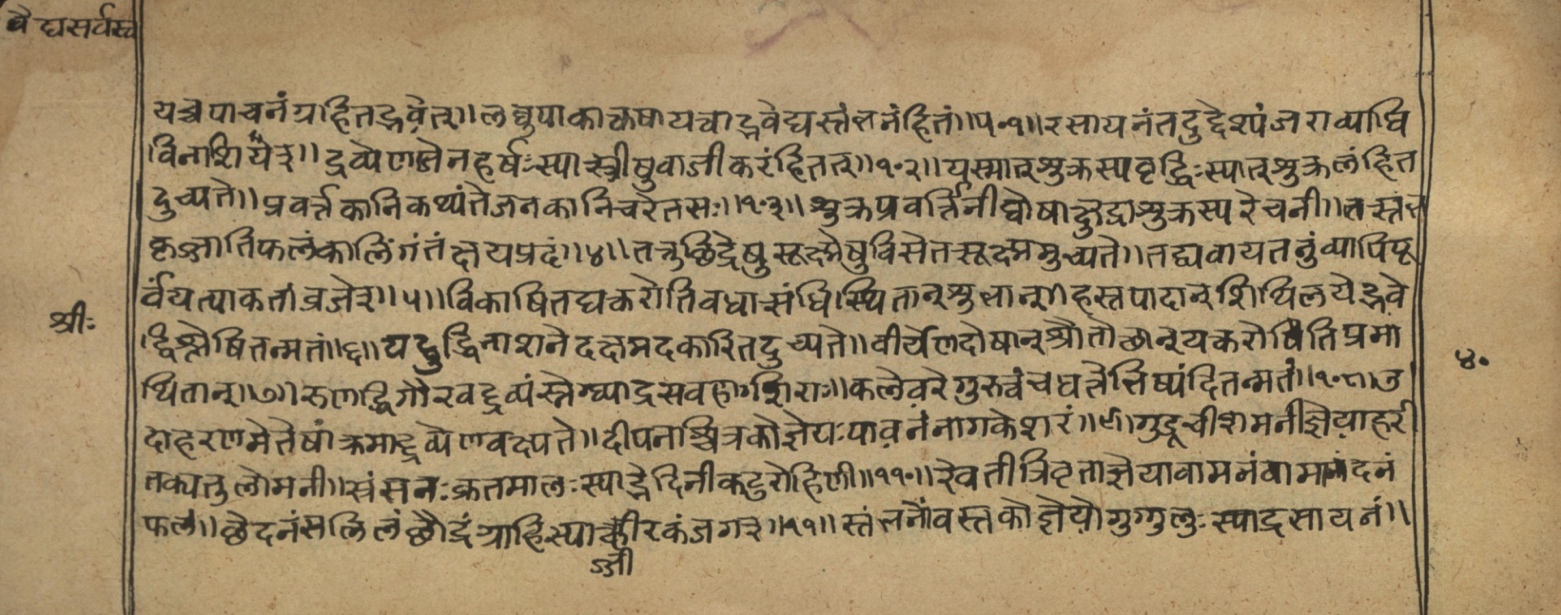 वैद्यसर्वस्व
यच्चपाचनंग्राहितद्भवेत्॥लघुपाकाकषायत्वाद्भवेद्यस्तंभनंहितं॥१०१॥रसायनंतदुद्देश्यंजराव्याधि
विनाशियेत्॥द्रव्येणजेनहर्षःस्यास्त्रीषुवाजीकरंहितत्॥१०२॥यस्मात्शुक्रस्यवृद्धिःस्यात्शुक्रलंहित
दुच्यते॥प्रवर्त्तकानिकथ्यंतेजनकानिचरेतसः॥१०३॥शुक्रप्रवर्त्तिनीघोषाक्षुद्राशुक्रस्यरेचनी॥तस्तंभ
कृज्जातिफलंकालिंगंतंक्षयप्रदं॥४॥तनुछिद्रेषुसूक्ष्मेषुविसेतसूक्ष्ममुच्यते॥तद्यवायतनुंव्यापिपू
र्वंयत्पाकतांव्रजेत्॥५॥विकाषितद्यकरोतिवधासंधिस्थितान्शुभान्॥हस्तपादान्शिथिलयेद्भवे
द्विश्लेषितन्मतं॥६॥यद्बुद्धिनाशनेदक्षमदकारितदुच्यते॥वीर्येणदोषान्श्रौतोळान्यकरोतिप्रमा
थितान्॥७॥रुणद्धिगौरवद्द्रव्यंस्नेग्ध्याद्रसवहाशिराः॥कलेवरेगुरुत्वंचधत्तेभिष्यंदितन्मतं॥१०८॥उ
दाहरणमेतेषांक्रमाद्द्रव्येणवक्ष्यते॥दीपनश्चित्रकोज्ञेयःपावनंनागकेशरं॥९॥गुडूचीशमनीज्ञेयाहरी
तक्यनुलोमनी॥स्रंसनःकृतमालःस्याद्भेदिनीकटुरोहिणी॥११०॥रेवतीत्रिवृताज्ञेयावामनंवामानंदनं
फलं॥छेदनंसलिलंछौद्रंग्राहिस्याज्जीरकंजगत्॥११॥स्तंभनौवस्तकौज्ञेयोगुग्गुलुःस्याद्रसायनं॥
ज्जी
श्रीः
४०